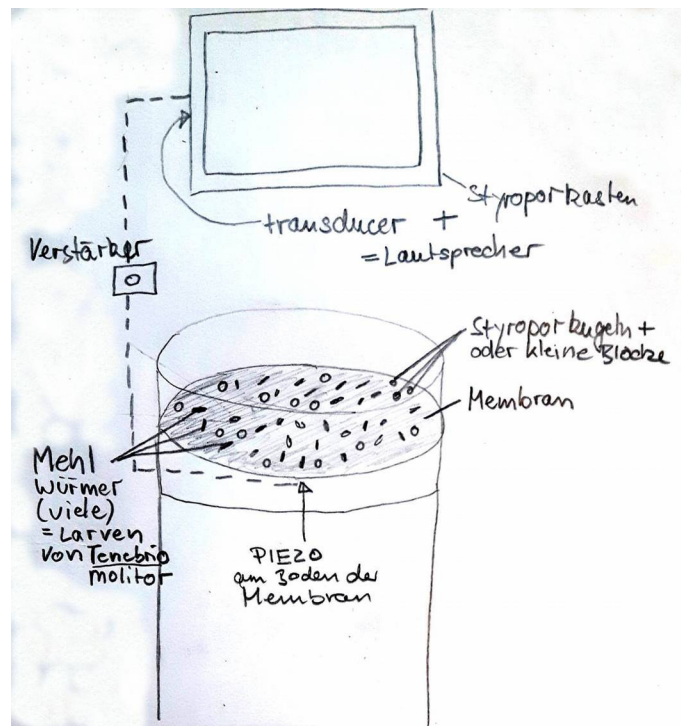 Styroporkasten
transducer +
= Lautsprecher
Verstärker
Styroporkugeln +
oder kleine Blöcke
Membran
Mehl
würmer
(viele)
= Larven
von Tenebrio
molitor
PIEZO
am Boden der
Membran